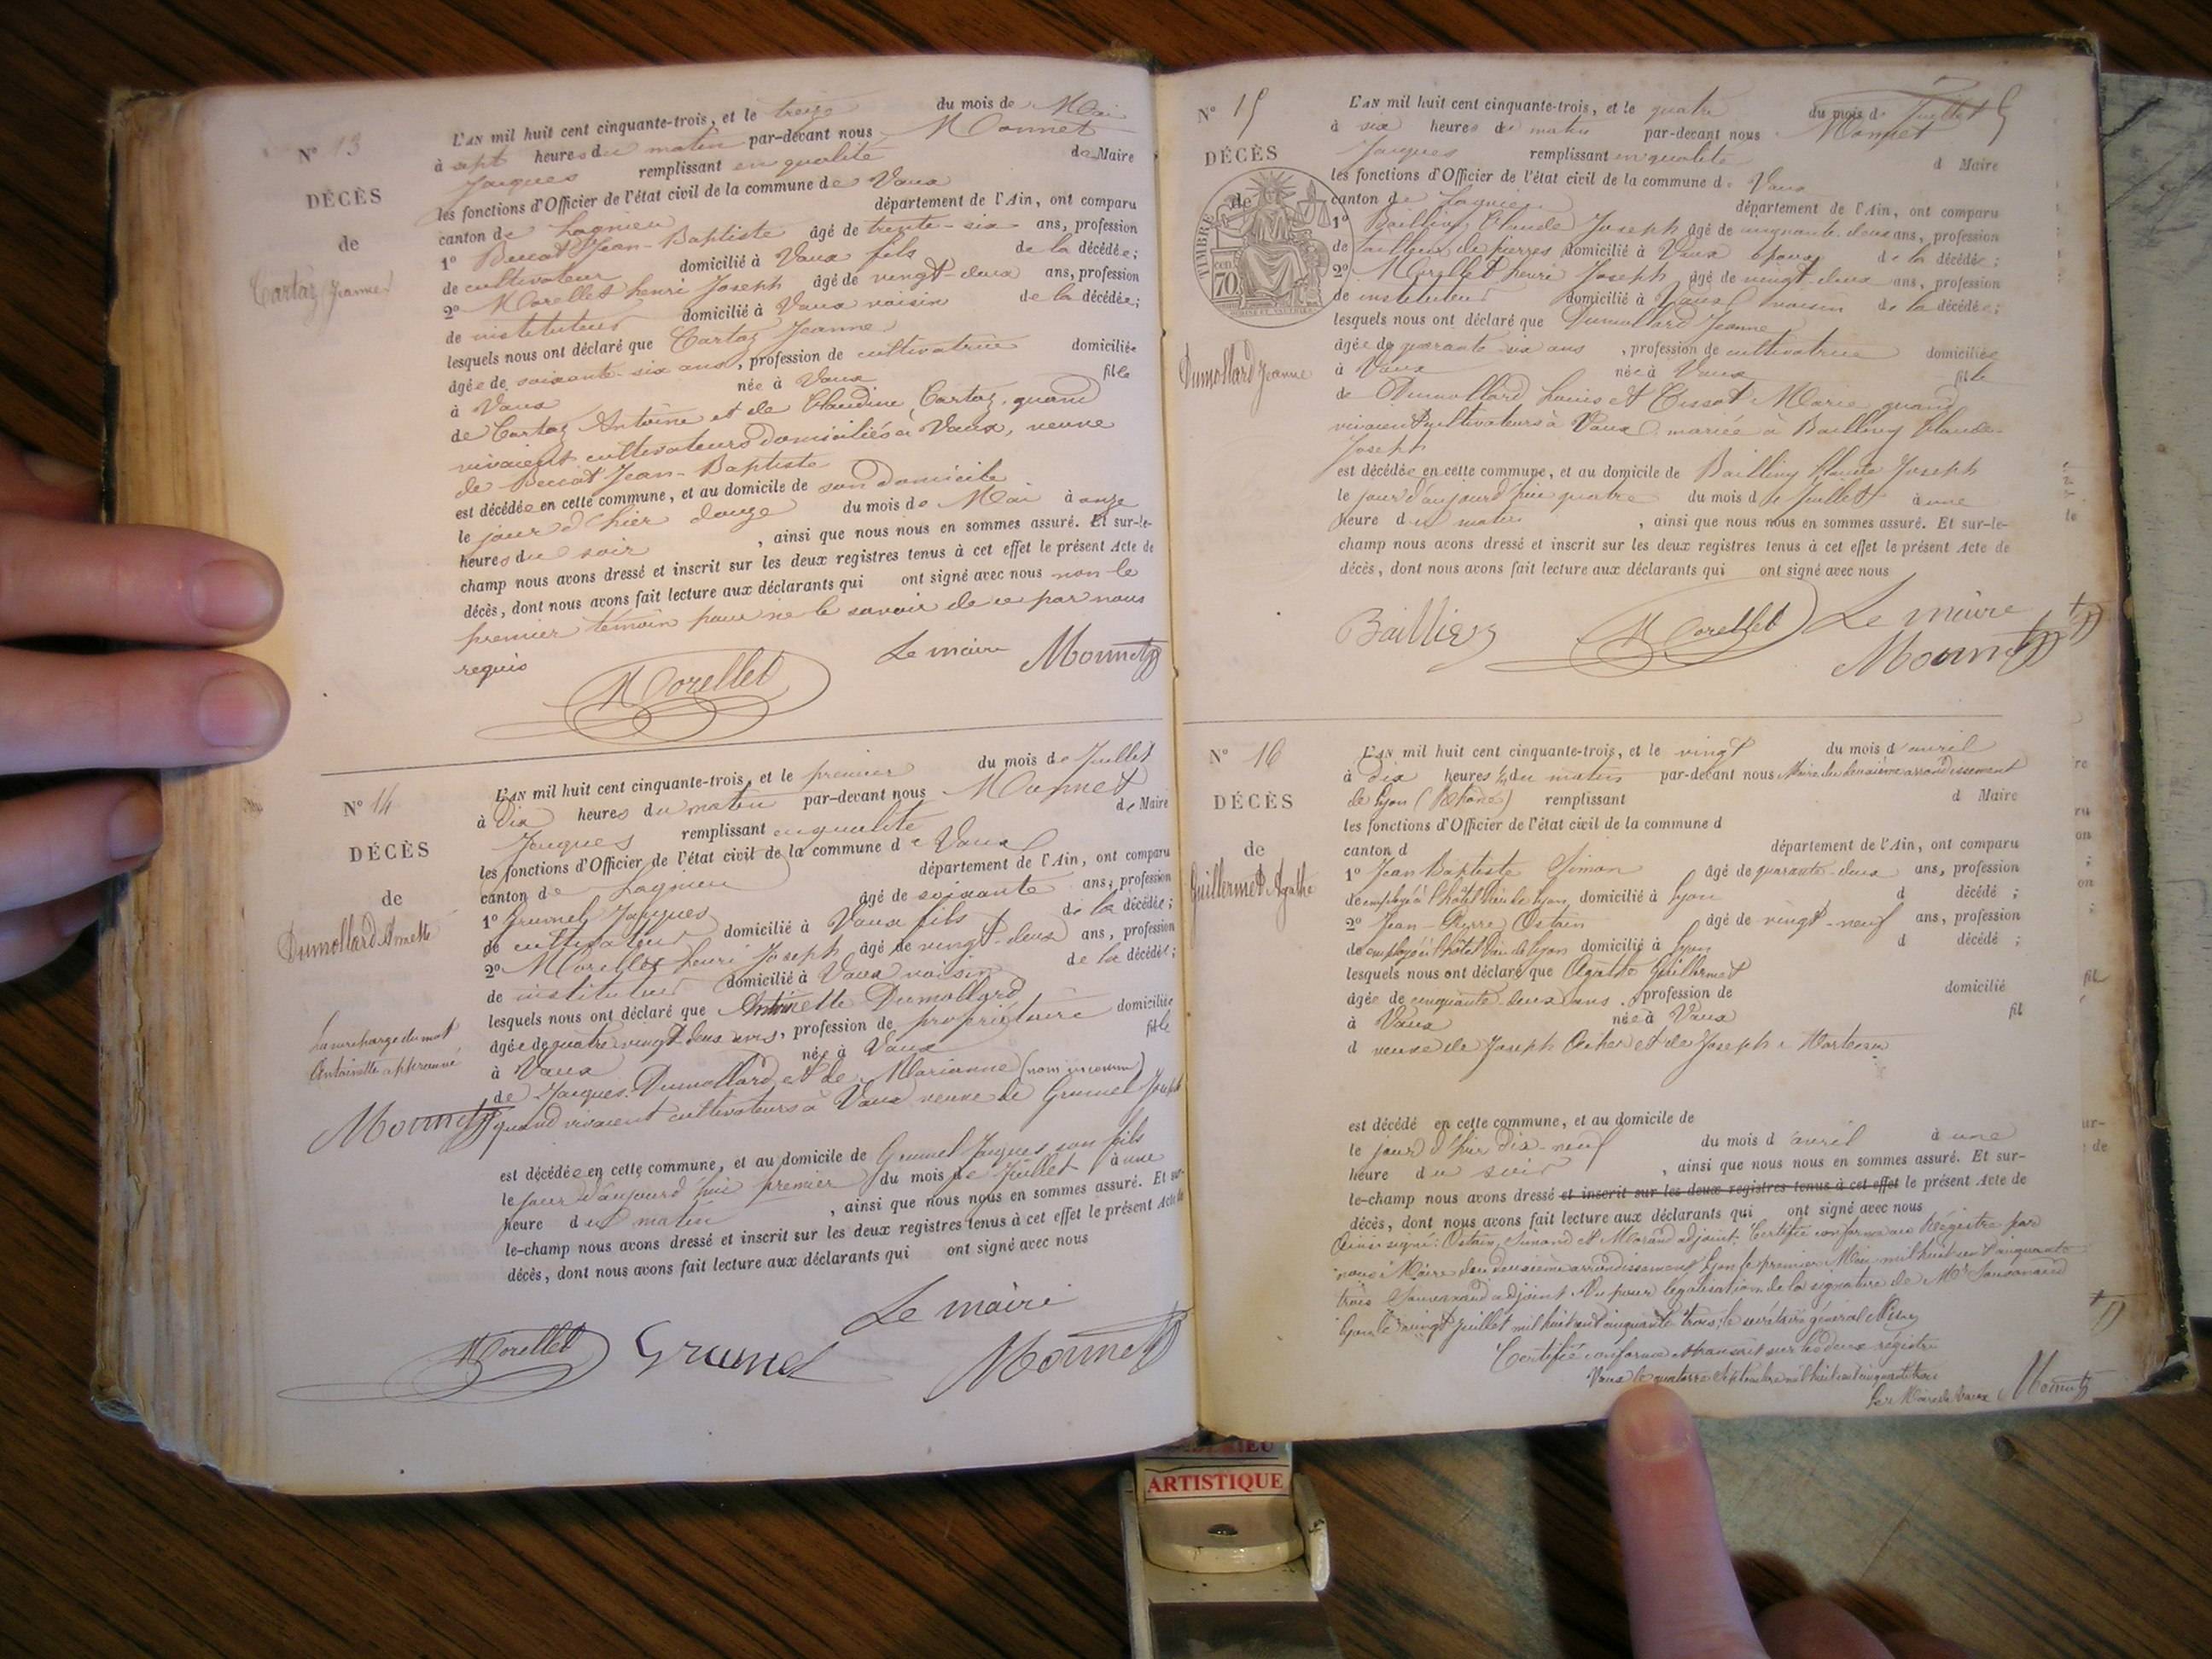 N° 13
DÉCÈS
de
Cartaz Jeanne
L'AN mil huit cent cinquante-trois, et le treize du mois de Mai
à sept heures du matin par-devant nous Monnet
Jacques remplissant en qualité de Maire
les fonctions d'Officier de l'état civil de la commune de Vaux
canton de Lagnieu département de l'Ain, ont comparu
1° Jean-Baptiste âgé de trente-six ans, profession
de cultivateur domicilié à Vaux fils de la décédée;
2° Morellet henri Joseph âgé de vingt-deux ans, profession
de instituteur domicilié à Vaux voisin de la décédée;
lesquels nous ont déclaré que Cartaz Jeanne
âgée de soixante-six ans, profession de cultivatrice domiciliée
à Vaux née à Vaux fille
de Cartaz Antoine et de Claudine Cartaz, quand
vivaient cultivateurs domiciliés à Vaux, veuve
de Jean-Baptiste
est décédée en cette commune, et au domicile de son domicile
le jour d'hier douze du mois de Mai à onze
heures du soir, ainsi que nous nous en sommes assuré. Et sur-le-
champ nous avons dressé et inscrit sur les deux registres tenus à cet effet le présent Acte de
décès, dont nous avons fait lecture aux déclarants qui ont signé avec nous non le
premier témoin pour ne le savoir de ce par nous
requis
Le maire
Morellet Monnet
N° 14
DÉCÈS
de
Dumollard Annette
L'AN mil huit cent cinquante-trois, et le premier du mois de Juillet
à Dix heures du matin par-devant nous Monnet
Jacques remplissant en qualité de Maire
les fonctions d'Officier de l'état civil de la commune de Vaux
canton de Lagnieu département de l'Ain, ont comparu
1° Grumel Jacques âgé de soixante ans, profession
de cultivateur domicilié à Vaux fils de la décédée;
2° Morellet henri Joseph âgé de vingt-deux ans, profession
de instituteur domicilié à Vaux voisin de la décédée;
lesquels nous ont déclaré que Antoinette Dumollard
âgée de quatre vingt deux ans, profession de propriétaire domiciliée
à Vaux née à Vaux fille
de Jacques Dumollard et de Marianne (nom inconnu)
quand vivaient cultivateurs à Vaux veuve de Grumel Joseph
La surcharge du mot
Antoinette approuvé
Monnet
est décédée en cette commune, et au domicile de Grumel Jacques son fils
le jour d'aujourd'hui premier du mois de Juillet à une
heure du matin, ainsi que nous nous en sommes assuré. Et sur-
le-champ nous avons dressé et inscrit sur les deux registres tenus à cet effet le présent Acte de
décès, dont nous avons fait lecture aux déclarants qui ont signé avec nous
Le maire
Morellet Grumel Monnet
N° 15
DÉCÈS
de
TIMBRE
cen 70
Dumollard Jeanne
L'AN mil huit cent cinquante-trois, et le quatre du mois de Juillet
à six heures du matin par-devant nous Monnet
Jacques remplissant en qualité d Maire
les fonctions d'Officier de l'état civil de la commune de Vaux
canton de Lagnieu département de l'Ain, ont comparu
1° Claude Joseph âgé de cinquante-deux ans, profession
de tailleur de pierres domicilié à Vaux époux de la décédée;
2° Morellet henri Joseph âgé de vingt-deux ans, profession
de instituteur domicilié à Vaux voisin de la décédée;
lesquels nous ont déclaré que Dumollard Jeanne
âgée de quarante-six ans, profession de cultivatrice domiciliée
à Vaux née à Vaux fille
de Dumollard Louis et Marie quand
vivaient cultivateurs à Vaux mariée à Claude-
Joseph
est décédée en cette commune, et au domicile de Claude Joseph
le jour d'aujourd'hui quatre du mois de Juillet à une
heure du matin, ainsi que nous nous en sommes assuré. Et sur-le-
champ nous avons dressé et inscrit sur les deux registres tenus à cet effet le présent Acte de
décès, dont nous avons fait lecture aux déclarants qui ont signé avec nous
Morellet Le maire
Monnet
N° 16
DÉCÈS
de
Guillermet Agathe
L'AN mil huit cent cinquante-trois, et le vingt du mois d'avril
à dix heures ½ du matin par-devant nous Maire du deuxième arrondissement
de Lyon (Rhône) remplissant d Maire
les fonctions d'Officier de l'état civil de la commune d
canton d département de l'Ain, ont comparu
1° Jean Baptiste Simon âgé de quarante-deux ans, profession
de employé à l'hôtel Dieu de Lyon, domicilié à Lyon d décédé ;
2° Jean-Pierre Ostain âgé de vingt-neuf ans, profession
de employé à l'hôtel Dieu de Lyon domicilié à Lyon d décédé ;
lesquels nous ont déclaré que Agathe Guillermet
âgée de cinquante-deux ans, profession de domicilié
à Vaux née à Vaux fil
d veuve de Joseph et de Joseph
est décédé en cette commune, et au domicile de
le jour d'hier dix-neuf du mois d'avril à une
heure du soir, ainsi que nous nous en sommes assuré. Et sur-
le-champ nous avons dressé et inscrit sur les deux registres tenus à cet effet le présent Acte de
décès, dont nous avons fait lecture aux déclarants qui ont signé avec nous
Ainsi signé: Ostain, Simond et Morand adjoint. Certifié conforme au Registre par
nous Maire du deuxième arrondissement Lyon le premier Mai mil huit cent cinquante
trois adjoint. Vu pour légalisation de la signature de Mr
Lyon le vingt Juillet mil huit cent cinquante trois, le secrétaire général
Certifié conforme et transcrit sur les deux registres
Vaux le quatorze Septembre mil huit cent cinquante trois
Le Maire de Vaux Monnet
ARTISTIQUE